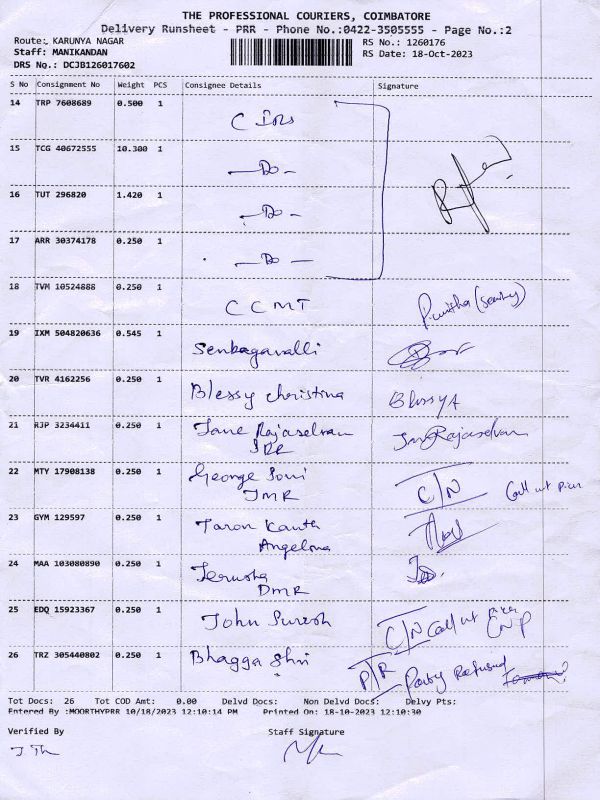 THE PROFESSIONAL COURIERS, COIMBATORE
Delivery Runsheet - PRR - Phone No.:0422-3505555 - Page No.:2
Route: KARUNYA NAGAR RS No.: 1260176
Staff: MANIKANDAN RS Date: 18-Oct-2023
DRS No.: DCJB126017602
S No Consignment No Weight PCS Consignee Details Signature
14 TRP 7608689 0.500 1
15 TCG 40672555 10.300 1 -Do-
16 TUT 296820 1.420 1 -Do-
17 ARR 30374178 0.250 1 -Do-
18 TVM 10524888 0.250 1 CCMT
19 IXM 504820636 0.545 1 Senbagavalli
20 TVR 4162256 0.250 1 Blessy christina BlessyA
21 RJP 3234411 0.250 1 Jane Rajaselvan
22 MTY 17908138 0.250 1 George C/N
23 GYM 129597 0.250 1
Angelona
24 MAA 103080890 0.250 1 Jerusha
DMR
25 EDQ 15923367 0.250 1 John Suresh C/N
26 TRZ 305440802 0.250 1 Bhagga Shri P/R Party Refused
Tot Docs: 26 Tot COD Amt: 0.00 Delvd Docs: Non Delvd Docs: Delvy Pts:
Entered By :MOORTHYPRR 10/18/2023 12:10:14 PM Printed On: 18-10-2023 12:10:30
Verified By Staff Signature